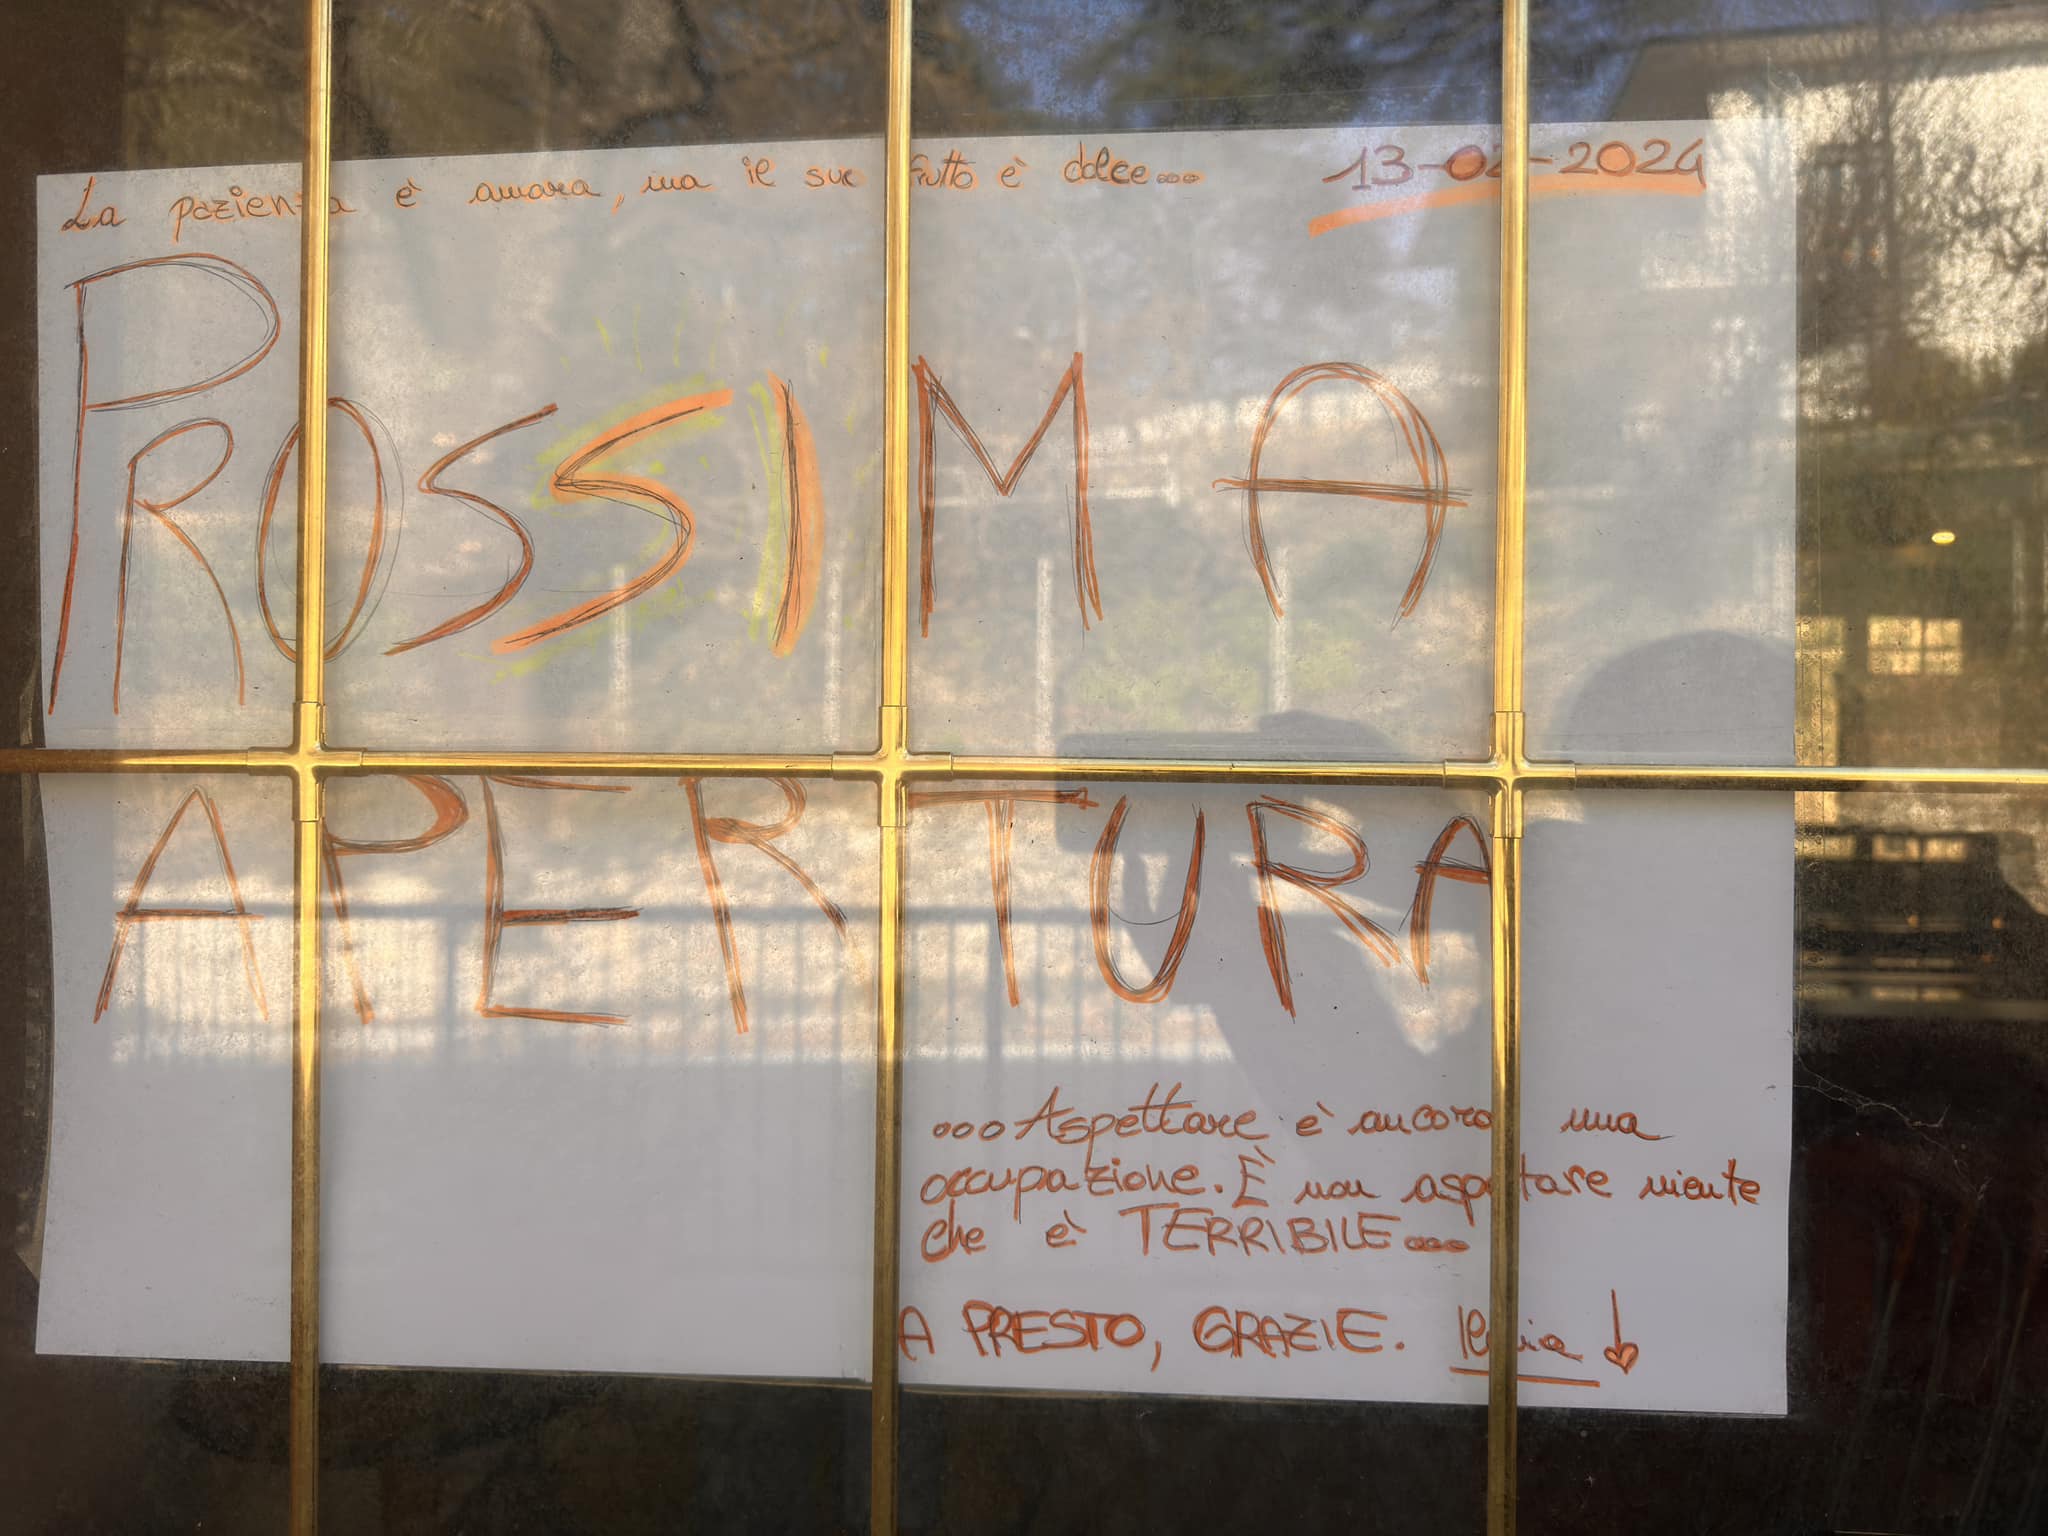 La pazienza è amara, ma il suo frutto è dolce...
13-02-2024
PROSSIMA
APERTURA
...Aspettare è ancora una
occupazione. È non aspettare niente
che è TERRIBILE...
A PRESTO, GRAZIE.